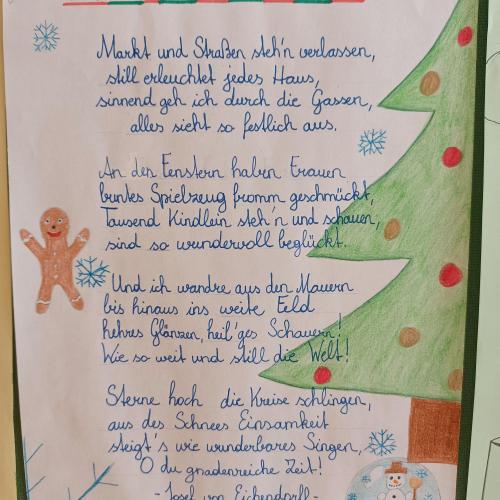 Markt und Straßen steh'n verlassen,
still erleuchtet jedes Haus,
sinnend geh ich durch die Gassen,
alles sieht so festlich aus.
An den Fenstern haben Frauen
buntes Spielzeug fromm geschmückt,
Tausend Kindlein steh'n und schauen,
sind so wundervoll beglückt.
Und ich wandre aus den Mauern
bis hinaus ins weite Feld
hehres Glänzen, heil'ges Schauern!
Wie so weit und still die Welt!
Sterne hoch die Kreise schlingen,
aus des Schnees Einsamkeit
steigt's wie wunderbares Singen,
O du gnadenreiche Zeit!
- Josef von Eichendorff -